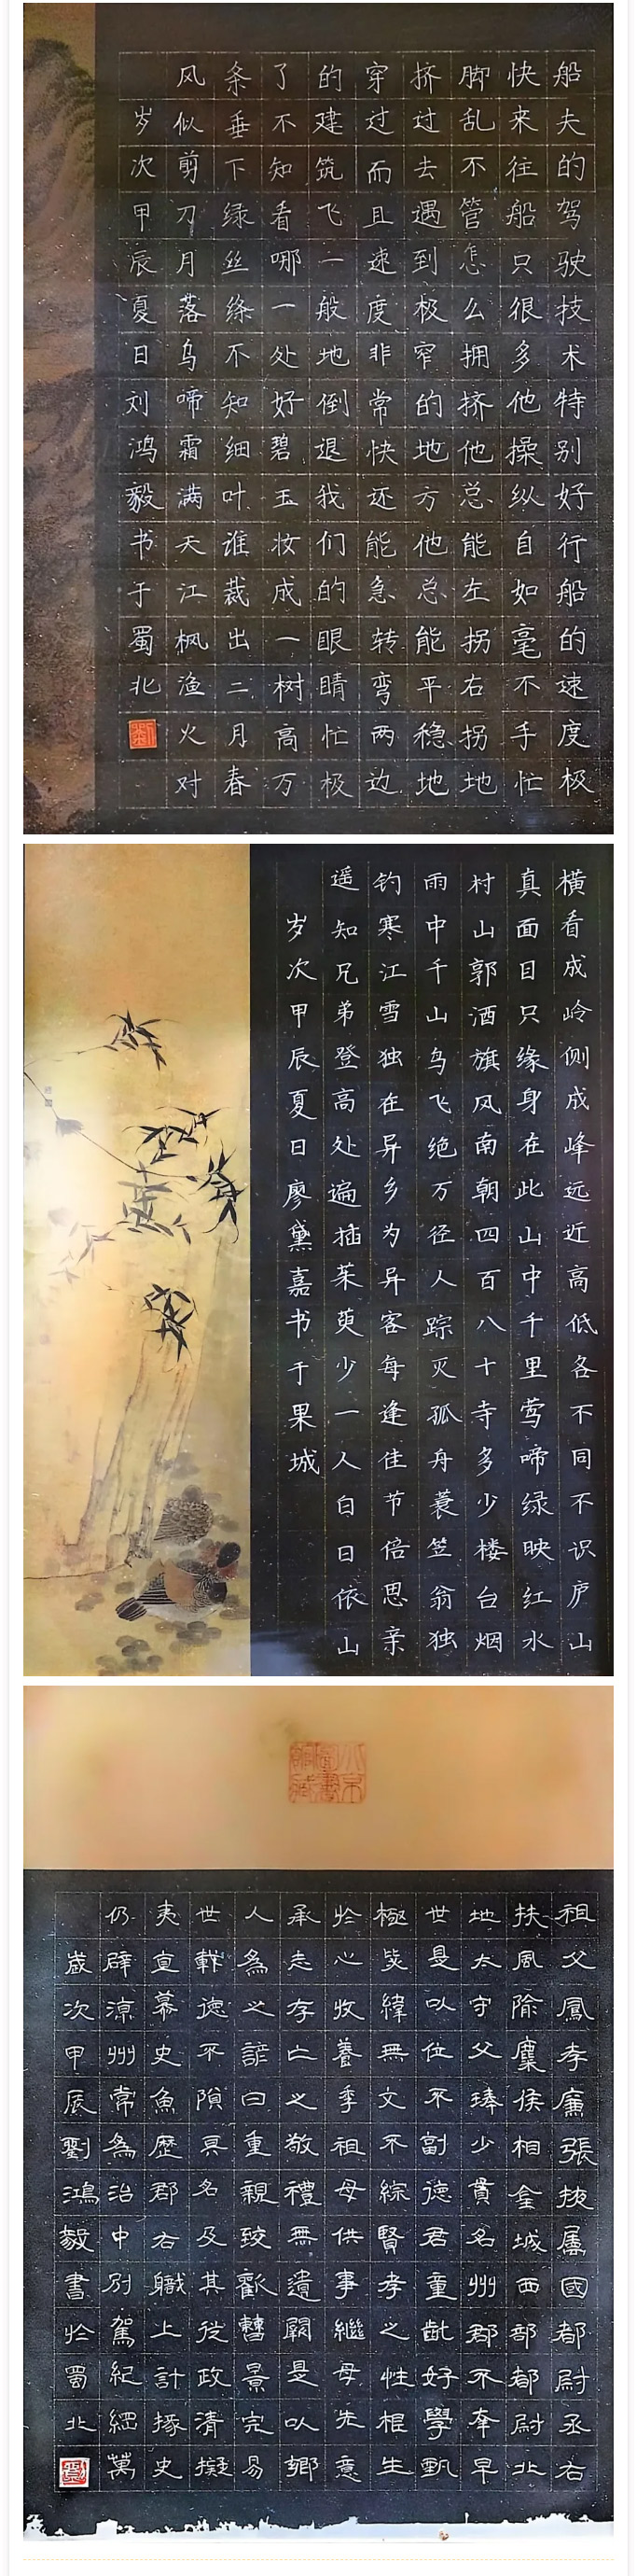 船夫的驾驶技术特别好行船的速度极
快来往船只很多他操纵自如毫不手忙
脚乱不管怎么拥挤他总能左拐右拐地
挤过去遇到极窄的地方他总能平稳地
穿过而且速度非常快还能急转弯两边
的建筑飞一般地倒退我们的眼睛忙极
了不知看哪一处好碧玉妆成一树高万
条垂下绿丝绦不知细叶谁裁出二月春
风似剪刀月落乌啼霜满天江枫渔火对
岁次甲辰夏日刘鸿毅书于蜀北
横看成岭侧成峰远近高低各不同不识庐山
真面目只缘身在此山中千里莺啼绿映红水
村山郭酒旗风南朝四百八十寺多少楼台烟
雨中千山鸟飞绝万径人踪灭孤舟蓑笠翁独
钓寒江雪独在异乡为异客每逢佳节倍思亲
遥知兄弟登高处遍插茱萸少一人白日依山
岁次甲辰夏日廖黛嘉书于果城
祖父鳳孝廉張掖屬國都尉丞右
扶風隃麋侯相金城西部都尉北
地太守父琫少貫名州郡不幸早
世是以位不副德君童齔好學甄
極毖緯無文不綜賢孝之性根生
於心收養季祖母供事繼母先意
承志存亡之敬禮無遺闕是以鄉
人為之諺曰重親致歡曹景完易
世載德不隕其名及其從政清擬
夷直慕史魚歷郡右職上計掾史
仍辟涼州常為治中別駕紀綱萬
歲次甲辰劉鴻毅書於蜀北